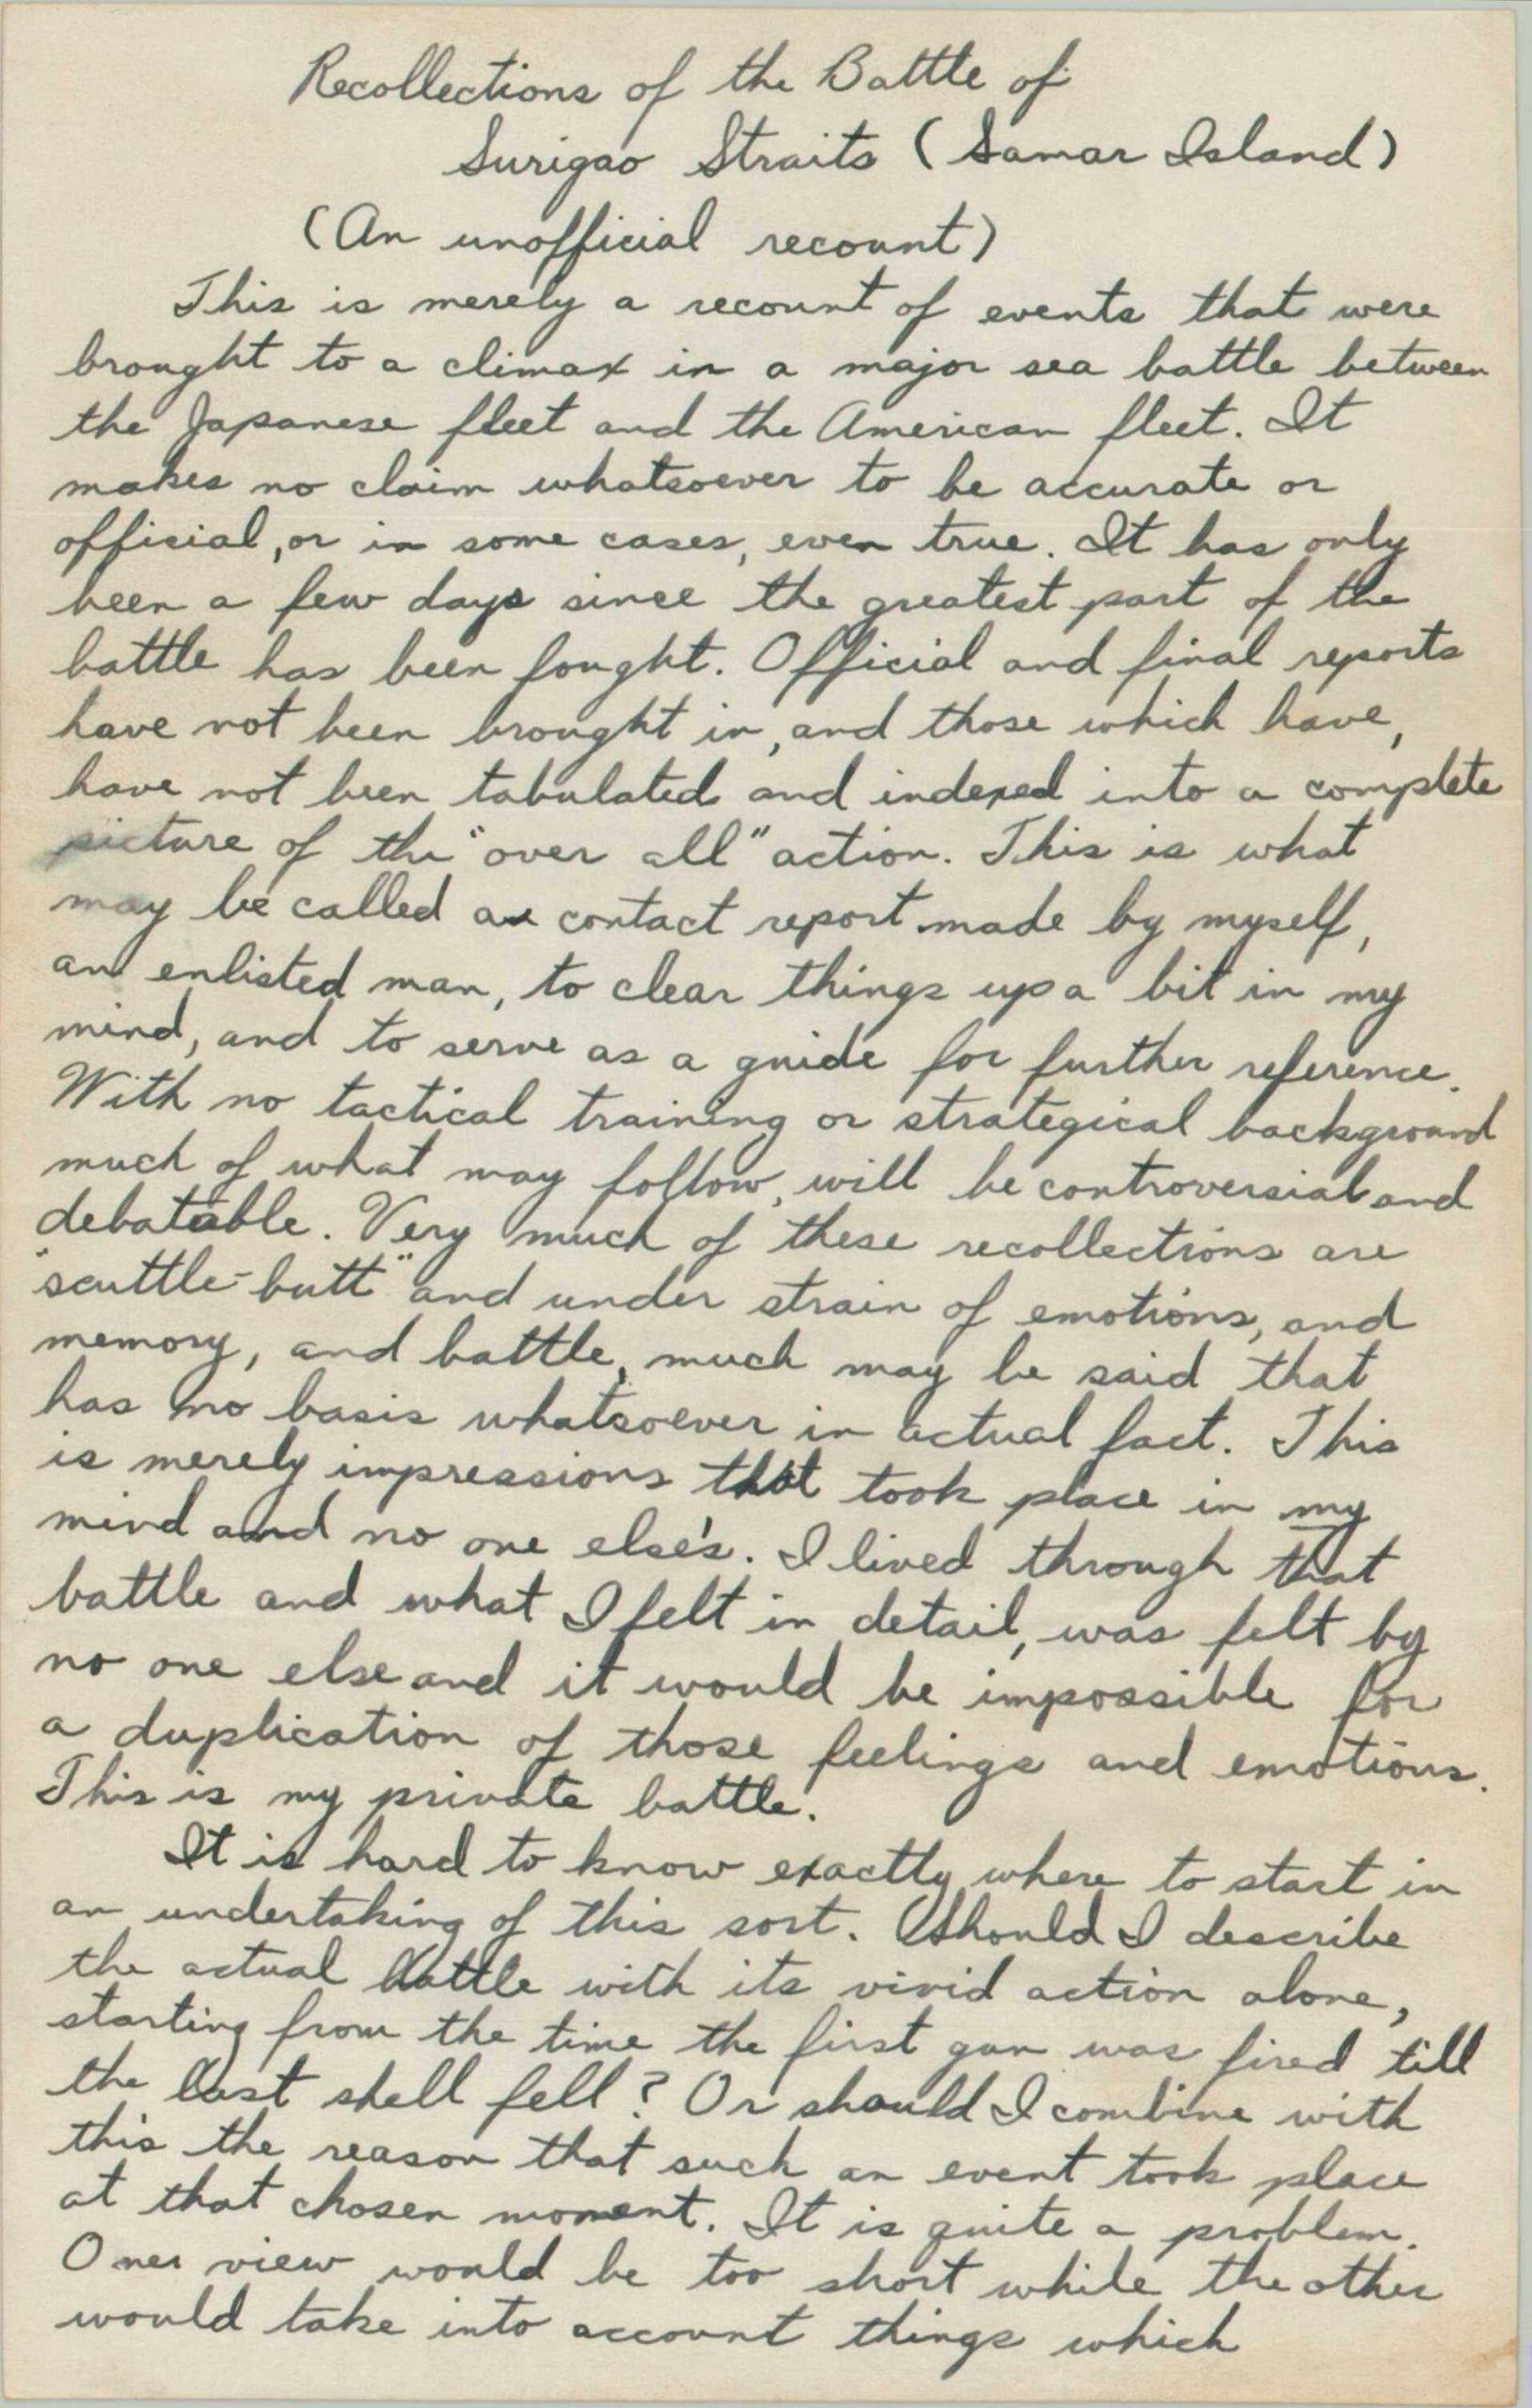 Recollections of the Battle of
Surigao Straits (Samar Island)
(An unofficial recount)
This is merely a recount of events that were
brought to a climax in a major sea battle between
the Japanese fleet and the American fleet. It
makes no claim whatsoever to be accurate or
official, or in some cases, even true. It has only
been a few days since the greatest part of the
battle has been fought. Official and final reports
have not been brought in, and those which have,
have not been tabulated and indexed into a complete
picture of the "over all" action. This is what
may be called a contact report made by myself,
an enlisted man, to clear things up a bit in my
mind, and to serve as a guide for further reference.
With no tactical training or strategical background
much of what may follow, will be controversial and
debatable. Very much of these recollections are
"scuttle-butt" and under strain of emotions, and
memory, and battle, much may be said that
has no basis whatsoever in actual fact. This
is merely impressions that took place in my
mind and no one else's. I lived through that
battle and what I felt in detail, was felt by
no one else and it would be impossible for
a duplication of those feelings and emotions.
This is my private battle.
It is hard to know exactly where to start in
an undertaking of this sort. Should I describe
the actual battle with its vivid action alone,
starting from the time the first gun was fired till
the last shell fell? Or should I combine with
this the reason that such an event took place
at that chosen moment. It is quite a problem.
One view would be too short while the other
would take into account things which